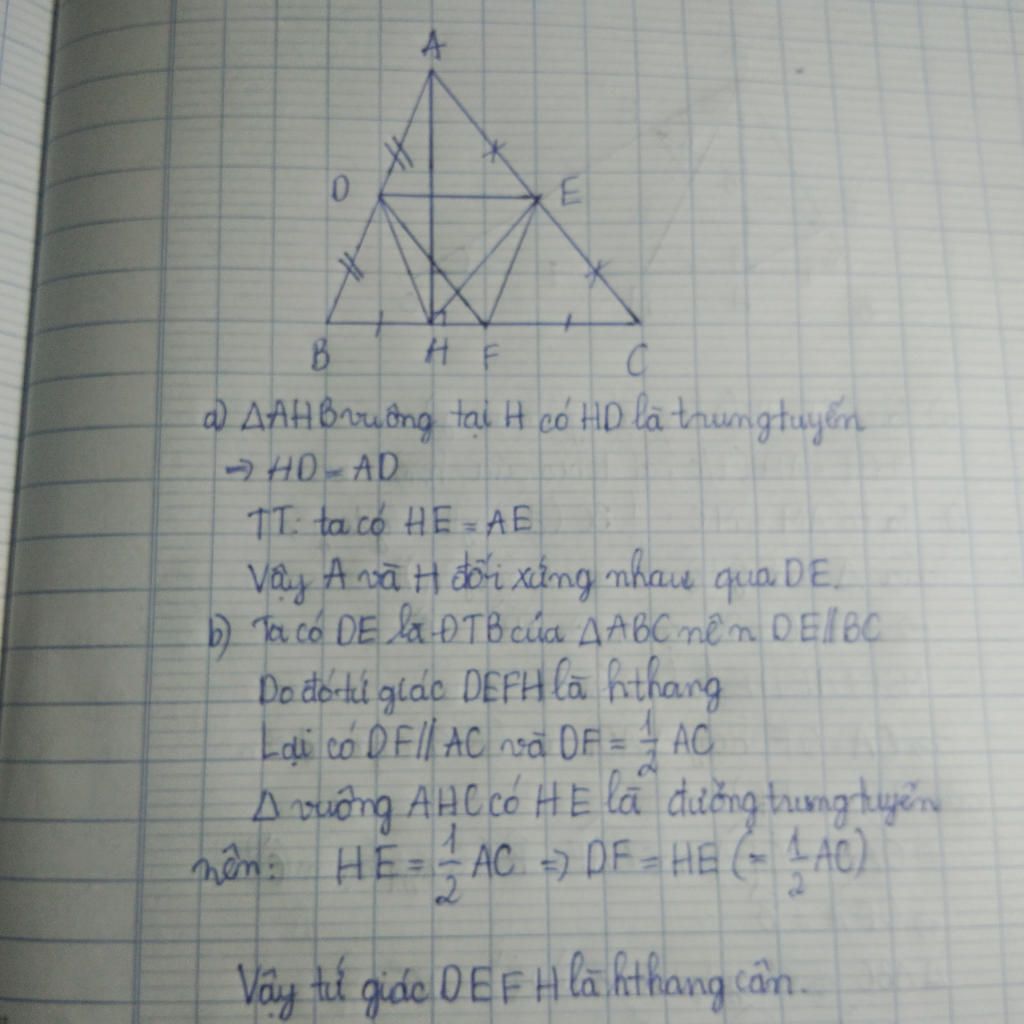 A
D
E
B
H
F
C
a) ΔAHB vuông tại H có HD là trung tuyến
→ HD = AD
TT: ta có HE = AE
Vậy A và H đối xứng nhau qua DE.
b) Ta có DE là ĐTB của ΔABC nên DE // BC
Do đó tứ giác DEFH là hthang
Lại có DF // AC và DF = 1/2 AC
Δ vuông AHC có HE là đường trung tuyến
nên: HE = 1/2 AC => DF = HE (= 1/2 AC)
Vậy tứ giác DEFH là hthang cân.